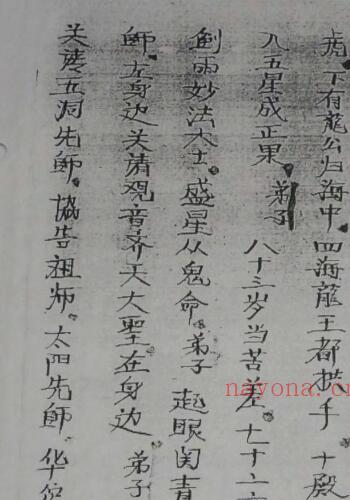 虎。下有龍公归海中。四海龍王都拱手。十殿
八五星成正果。弟子 八十三岁当苦差。七十二
雨妙法大士。盛星从鬼命。弟子 起眼青
師。左身边关清观音齐天大聖。在身边。弟子
关请五洞先師。協告祖师。太阳先師。华佗
nayona.c